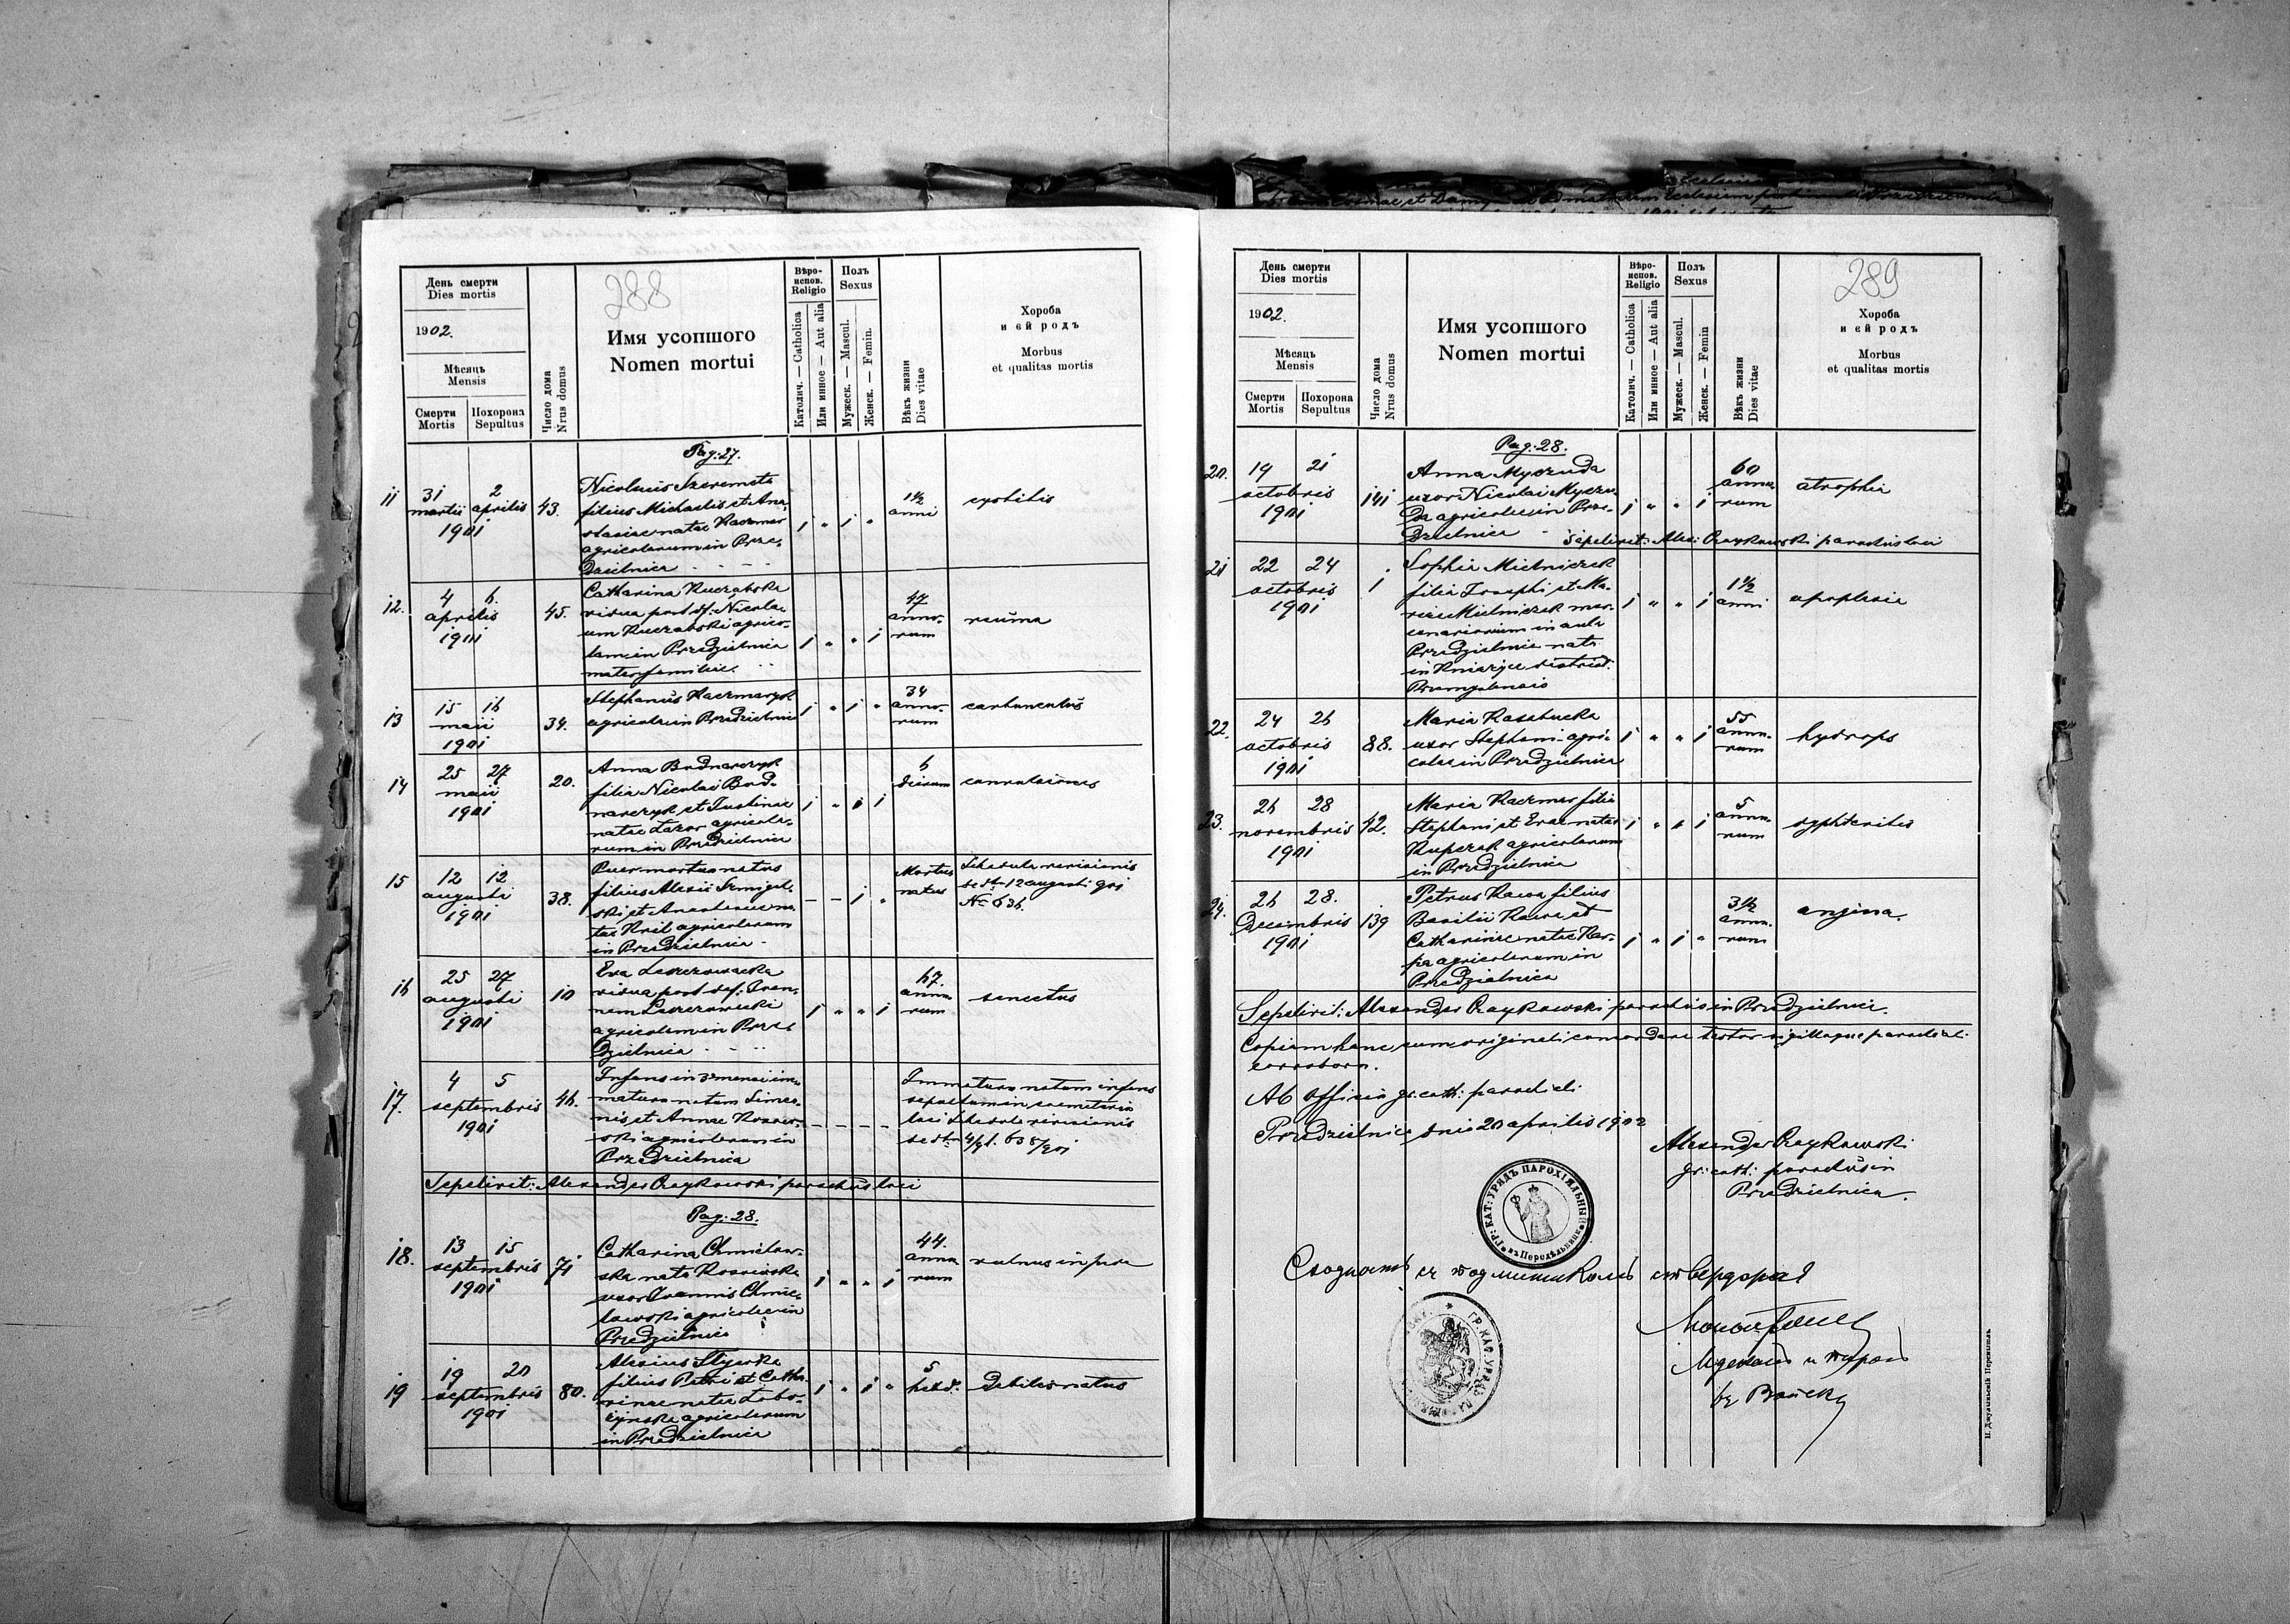 288
День смерти
Dies mortis
1902.
Мѣсяць
Mensis
Смерти
Mortis
Похорона
Sepultus
Число дома
Nrus domus
Имя усопшого
Nomen mortui
Вѣро-
испов.
Religio
Католич. — Catholica
Или инное — Aut alia
Полъ
Sexus
Мужеск. — Mascul.
Женск. — Femin.
Вѣкъ жизни
Dies vitae
Хороба
и єй родъ
Morbus
et qualitas mortis
Pag: 27.
11 31 martii 2 aprilis 1901 43.
Nicolaus Szeremeta
filius Michaelis et Ana-
stasiae natae Kaczmar
agricolarum in Prze-
dzielnica
1 " 1 "
1½ anni
cystitis
12. 4 6. aprilis 1901 45.
Catharina Kuczabska
vidua post df. Nicola-
um Kuczabski agrico-
lam in Przedzielnica
mater familiae.
1 " " 1
47 anno-
rum
reuma
13 15 16 maii 1901 34.
Stephanus Kaczmaryk
agricola in Przedzielnica
1 " 1 "
34 anno-
rum
carbunculus
14 25 27 maii 1901 20.
Anna Bodnarczyk
filia Nicolai Bod-
narczyk et Justinae
natae Lazor agricola-
rum in Przedzielnica
6 dierum
convulsiones
15 12 12 augusti 1901 38.
Puer mortuo natus
filius Alexii Semigel-
ski et Anastasiae na-
tae Kril agricolarum
in Przedzielnica
– – 1 "
Mortuo
natus
Schedula revisionis
de dto 12 augusti 901
No 636.
16 25 27 augusti 1901 10
Eva Leszczowacka
vidua post def. Joan-
nem Leszczowacki
agricolam in Prze-
dzielnica
1 " " 1
67. anno
rum
senectus
17. 4 5 septembris 1901 46.
Infans in 3 mensi im-
mature natum Simeo-
nis et Annae Kossow-
ski agricolarum in
Przedzielnica
– – – –
Immature natum infans
sepultum in coemeterio
loci Schedula revisionis
de dto 4/9 l. 635/901
Sepelivit: Alexander Czajkowski parochus loci
Pag: 28.
18. 13 15 septembris 1901 71
Catharina Chmielow-
ska nata Kossowska
uxor Joannis Chmie-
lowski agricolae in
Przedzielnica
1 " " 1
44. anno
rum
vulnus in pede
19 19 20 septembris 1901 80.
Alexius
filius Petri et Catha-
rinae natae Lobo-
agricolarum
in Przedzielnica
1 " 1 "
5 hebd.
debilis natus
289
День смерти
Dies mortis
1902.
Мѣсяць
Mensis
Смерти
Mortis
Похорона
Sepultus
Число дома
Nrus domus
Имя усопшого
Nomen mortui
Вѣро-
испов.
Religio
Католич. — Catholica
Или инное — Aut alia
Полъ
Sexus
Мужеск. — Mascul.
Женск. — Femin
Вѣкъ жизни
Dies vitae
Хороба
и єй родъ
Morbus
et qualitas mortis
Pag: 28.
20. 19 21 octobris 1901 141
Anna Myczuda
uxor Nicolai Myczu-
da agricolae in Prze-
dzielnica
1 " " 1
60 anno-
rum
atrophia
Sepelivit: Alex: Czajkowski parochus loci
21 22 24 octobris 1901 1
Sophia Mielniczek
filia Josephi et Ma-
riae Mielniczek mer-
cenariorum in aula
Przedzielnica nata
in district.
Premyslensis
1 " " 1
1½ anni
apoplexia
22. 24 26 octobris 1901 88.
Maria
uxor Stephani agri-
colae in Przedzielnica
1 " " 1
55 anno-
rum
hydrops
23. 26 28 novembris 1901 42.
Maria Kaczmar filia
Stephani et Evae natae
Kupczak agricolarum
in Przedzielnica
1 " " 1
5 anno-
rum
dyphteritis
24. 26 28. Decembris 1901 139
Petrus Kawa filius
Basilii Kawa et
Catharinae natae Kar-
pa agricolarum in
Przedzielnica
1 " 1 "
3½ anno-
rum
angina.
Sepelivit: Alexander Czajkowski parochus in Przedzielnica.
Copiam hanc cum originali concordare testor sigilloque parochiali
corroboro.
Ab officio gr: cath: parochiali
Przedzielnica dnia 20 aprilis 1902
Alexander Czajkowski
gr: cath: parochus in
Przedzielnica.
ГР: КАТ: УРЯДЪ ПАРОХІЯЛЬНЫЙ
въ Передѣльници
Сходность съ подлинникомъ ствердораъ
ГР. КАТ. УРЯДЪ
Н. Джулыньскій Перемышль